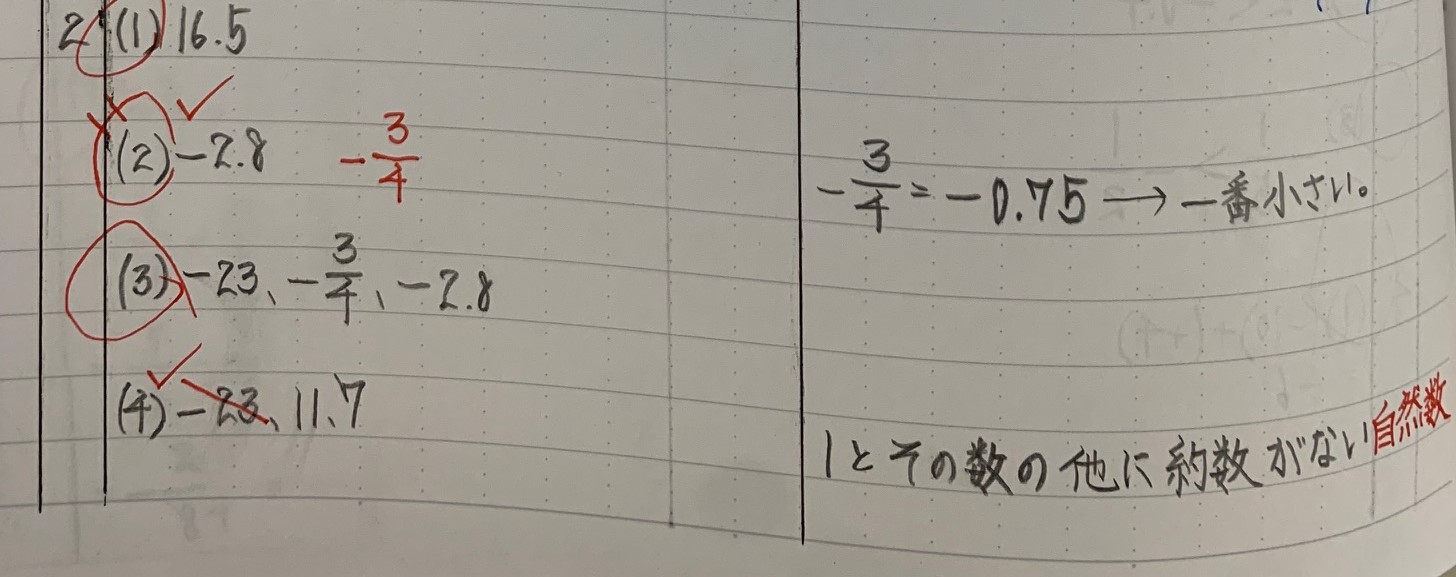 2 (1) 16.5
(2) -2.8 -3/4
-3/4 = -0.75 → 一番小さい。
(3) -23、-3/4、-2.8
(4) -23、11、7
1とその数の他に約数がない自然数